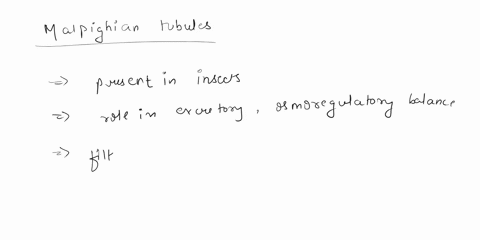 Malpighian tubules
=> present in insects
=> role in excretory, osmoregulatory balance
=> filt